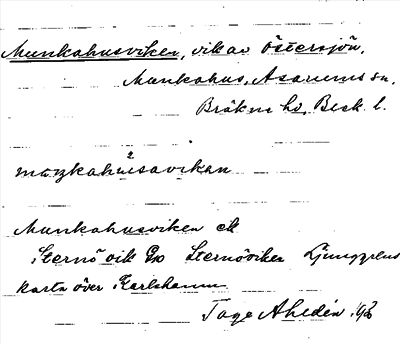 Munkahusviken, vik av Östersjön,
Munkahus, Asarums sn,
Bräkne hd, Blek. l.
Munkahusviken ek
Sternö vik Sternöviken Ljunggrens
karta över Karlshamn
Tage Ahldén